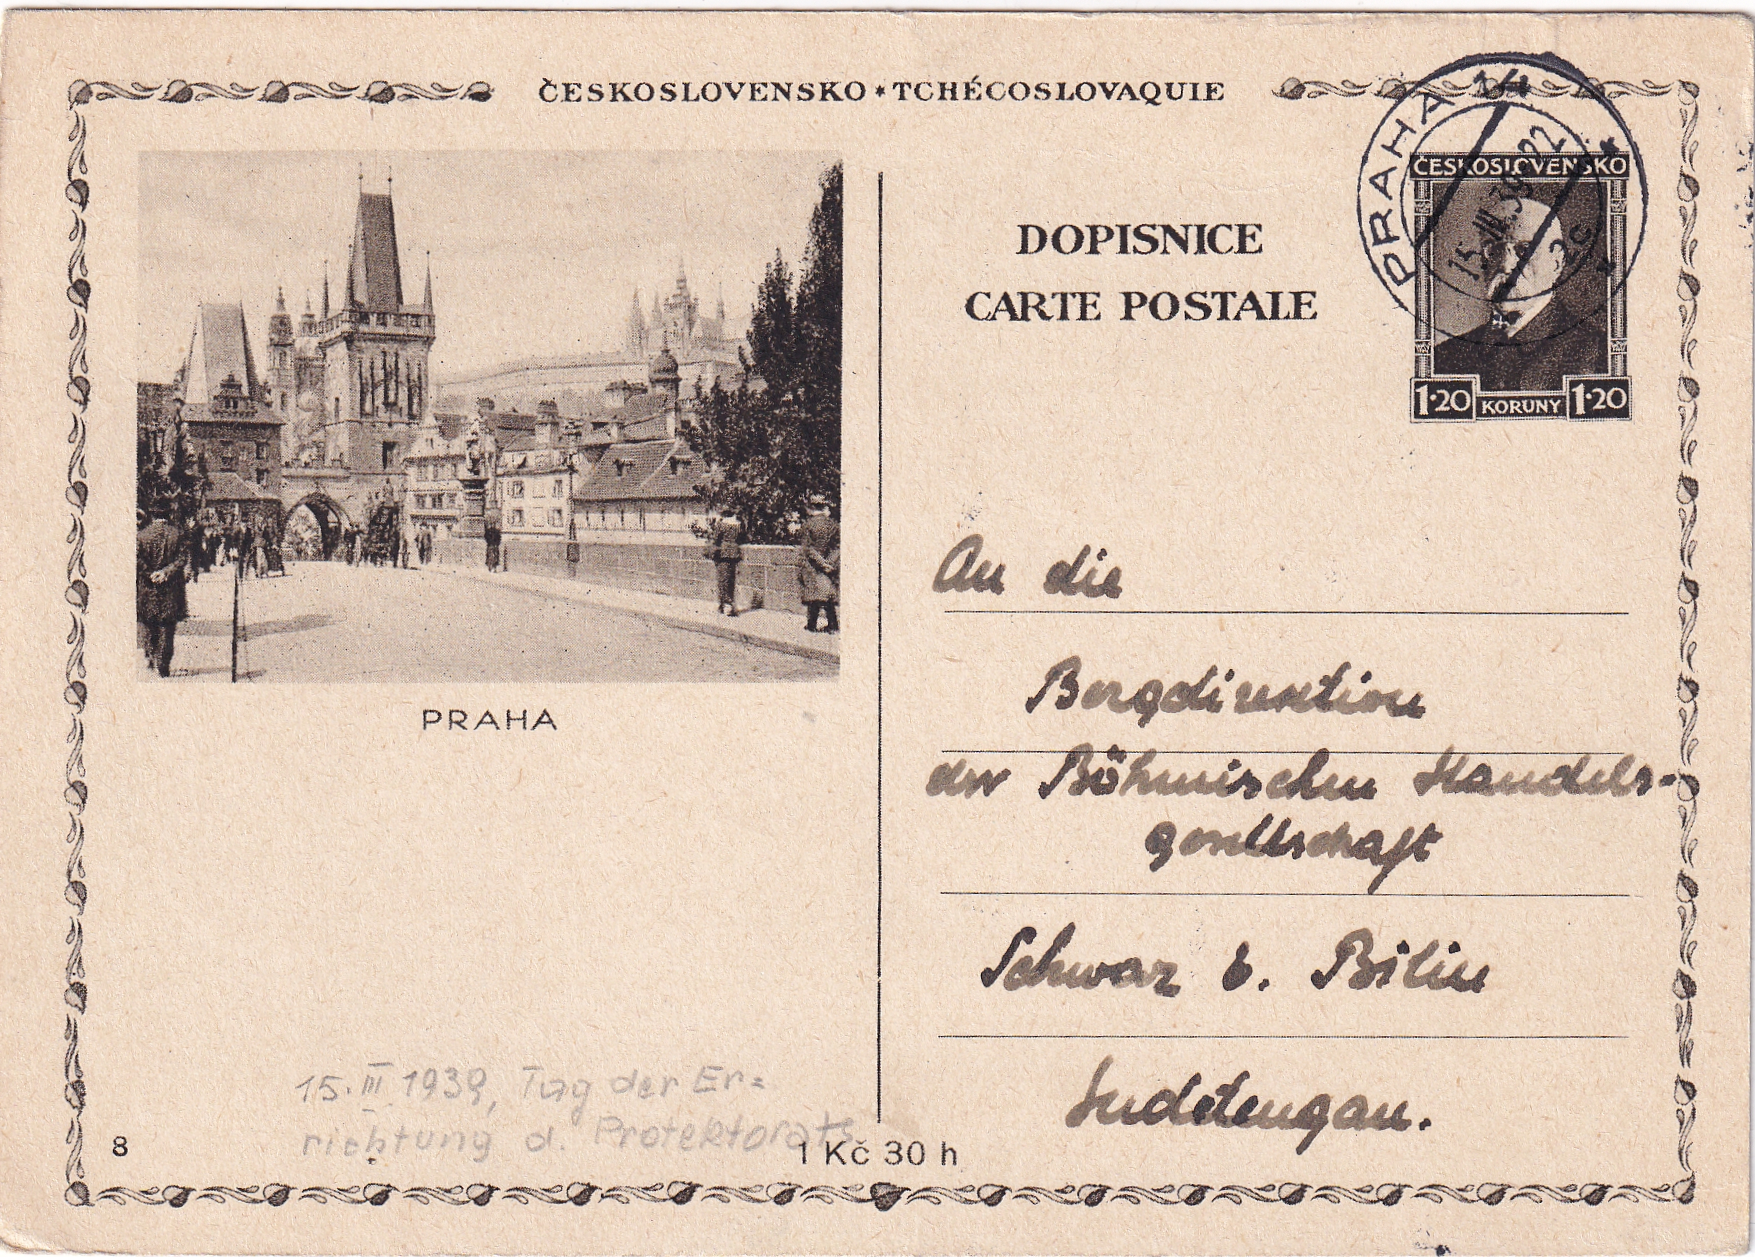 ČESKOSLOVENSKO * TCHÉCOSLOVAQUIE
PRAHA 14
15.III.39-22
2c
ČESKOSLOVENSKO
DOPISNICE
CARTE POSTALE
1·20 KORUNY 1·20
PRAHA
An die
Bergdirektion
der Böhmischen Handels-
gesellschaft
Schwaz b. Bilin
Sudetengau.
15.III.1939, Tag der Er=
richtung d. Protektorats
8
1 Kč 30 h